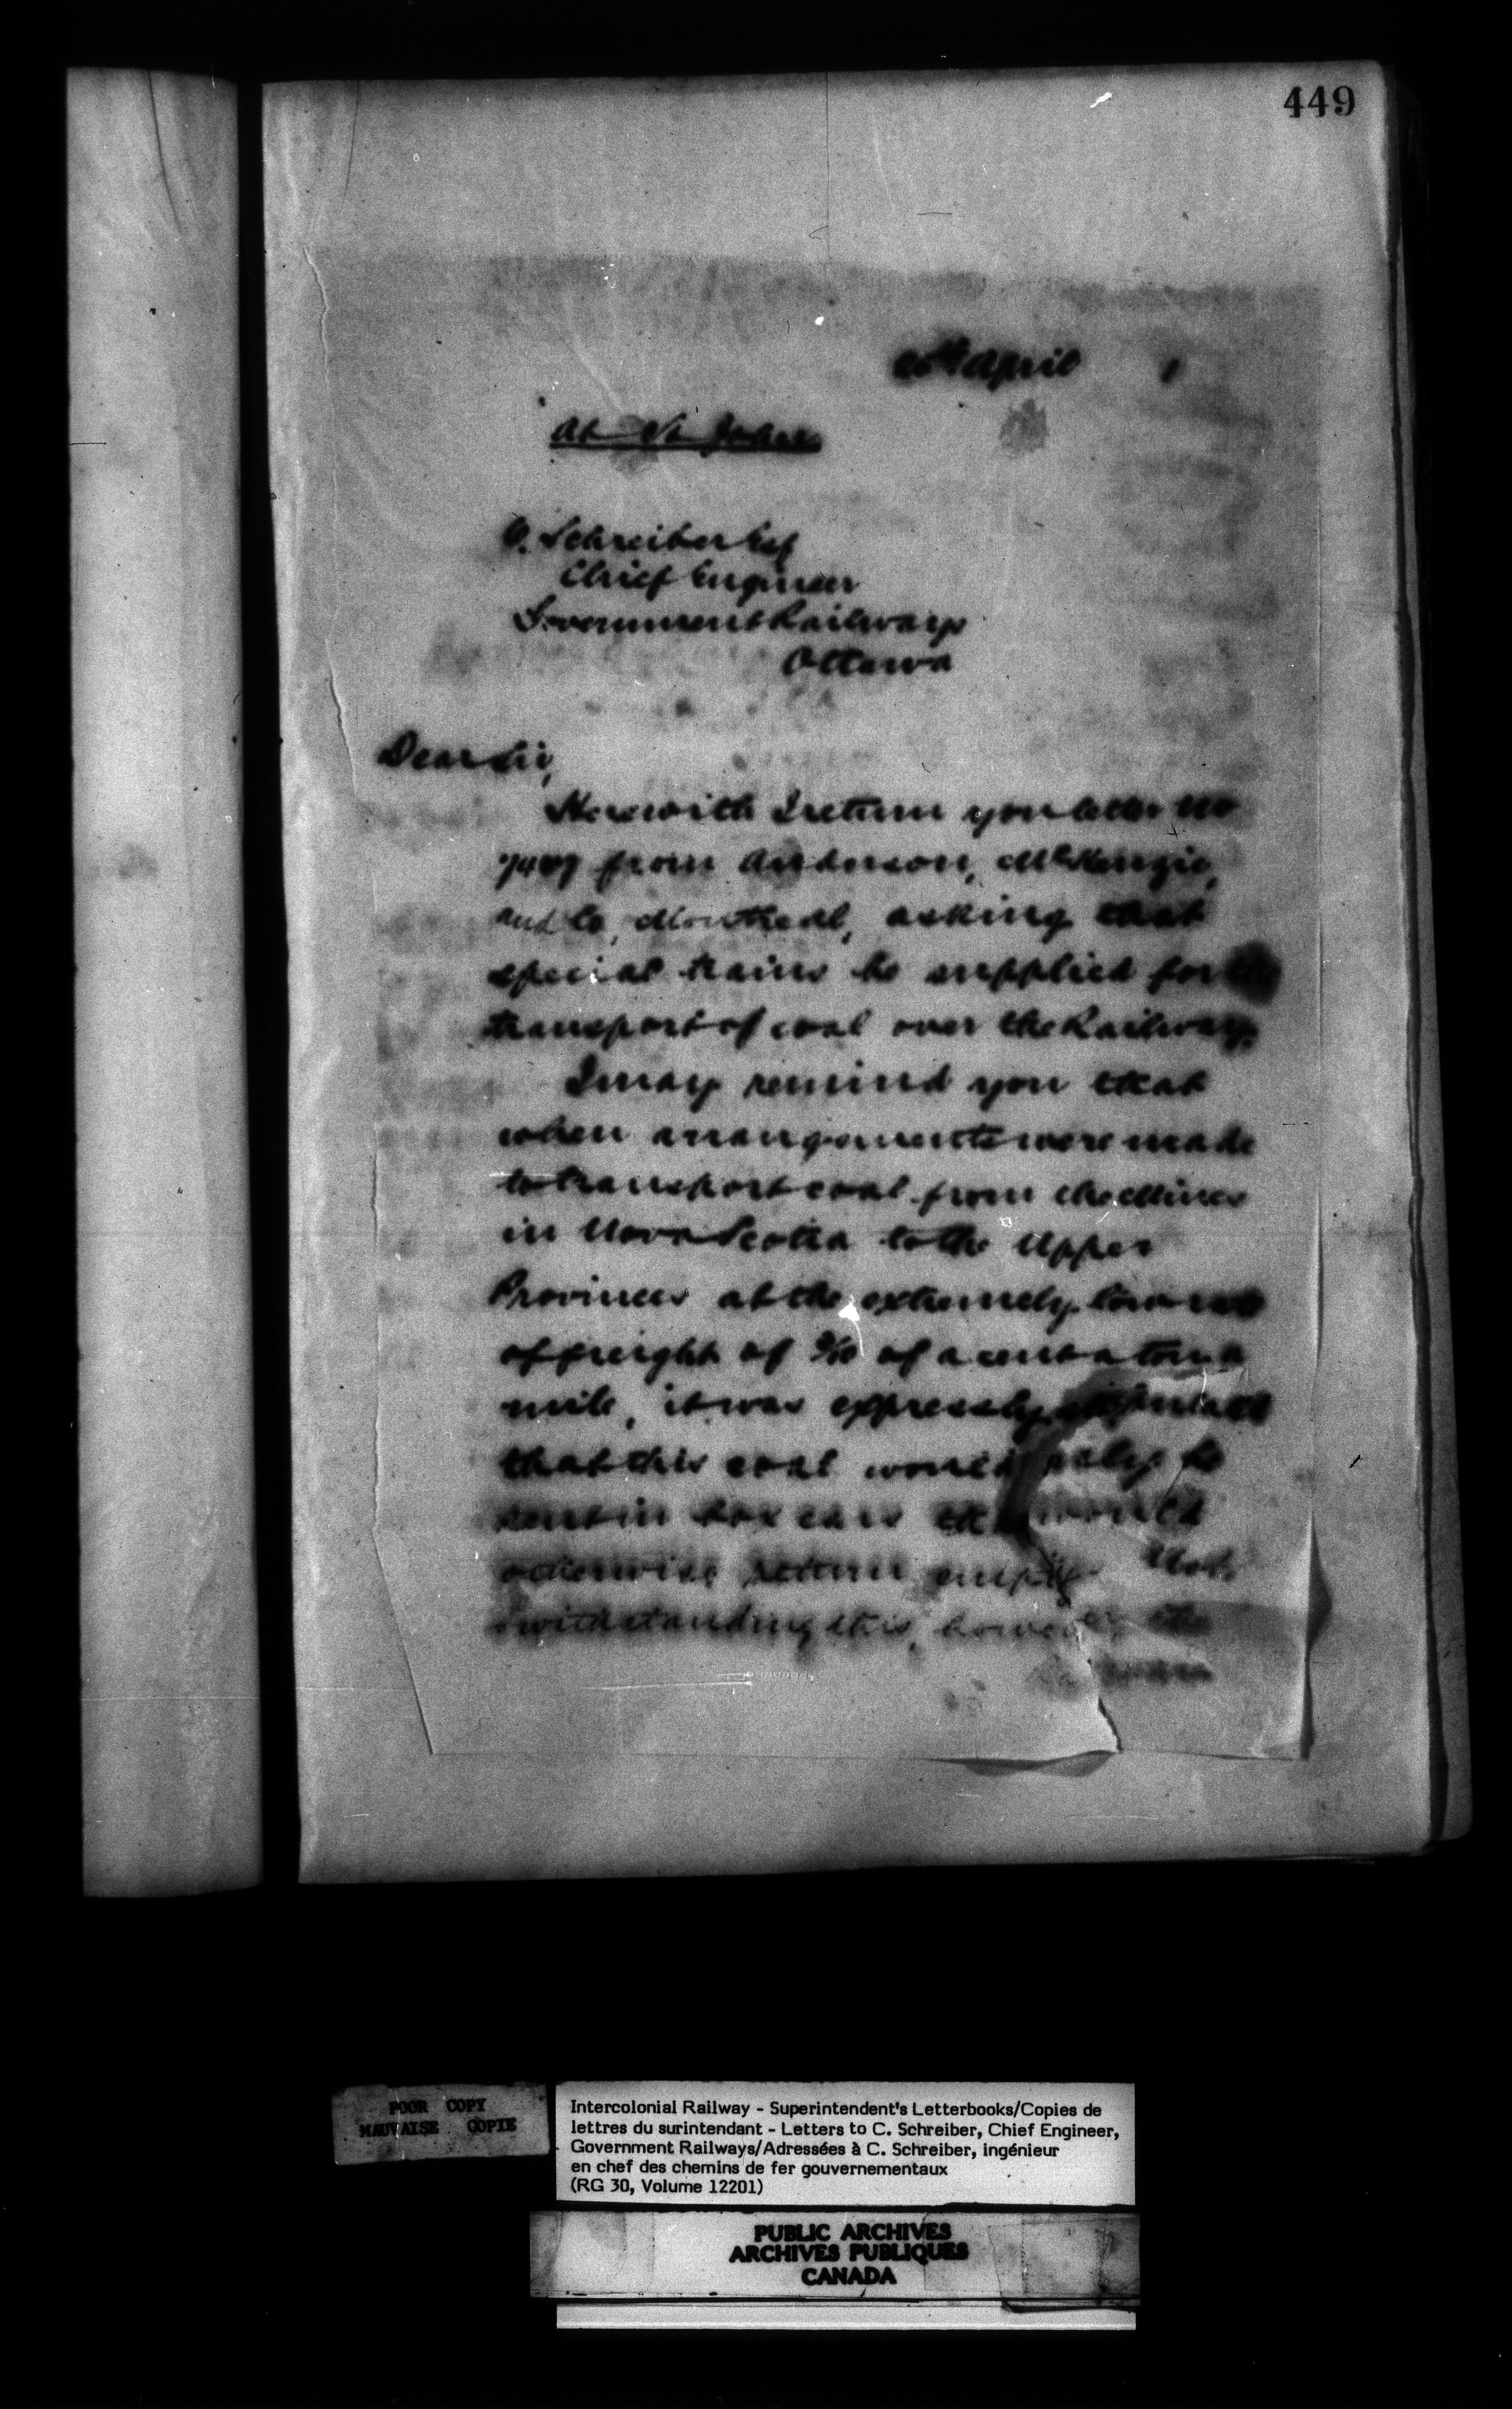 449
April 1
At St John
C. Schreiber Esq
Chief Engineer
Government Railways
Ottawa
Dear Sir,
Herewith I return you letter No
from Anderson, McKenzie,
and Co, Montreal, asking that
special trains be supplied for the
transport of coal over the Railway.
I may remind you that
when arrangements were made
to transport coal from the Mines
in Nova Scotia to the Upper
Provinces at the extremely low rate
of freight of 3/10 of a cent a ton a
mile, it was expressly stipulated
that this coal would only be
sent in box cars that would
otherwise return empty. Not
withstanding this, however, the
POOR COPY
MAUVAISE COPIE
Intercolonial Railway - Superintendent's Letterbooks/Copies de
lettres du surintendant - Letters to C. Schreiber, Chief Engineer,
Government Railways/Adressées à C. Schreiber, ingénieur
en chef des chemins de fer gouvernementaux
(RG 30, Volume 12201)
PUBLIC ARCHIVES
ARCHIVES PUBLIQUES
CANADA